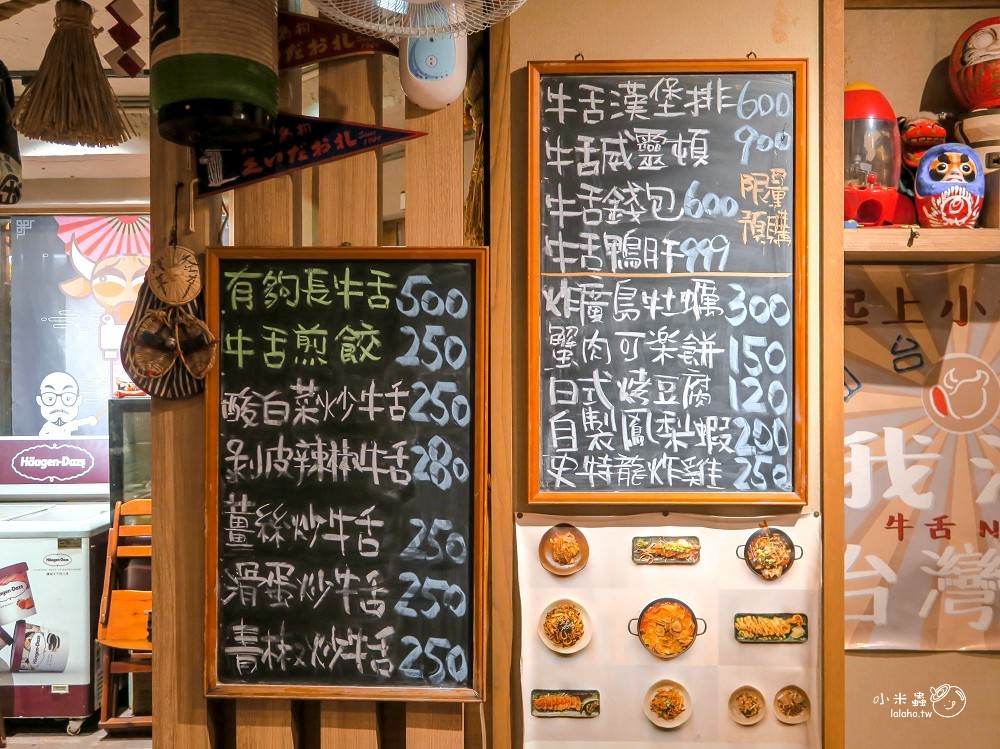 えいだおれ
有夠長牛舌 500
牛舌煎餃 250
酸白菜炒牛舌 250
剝皮辣椒牛舌 280
薑絲炒牛舌 250
滑蛋炒牛舌 250
青椒炒牛舌 250
牛舌漢堡排 600
牛舌威靈頓 900
牛舌錢包 600
限量
預購
牛舌鴨肝 999
炸廣島牡蠣 300
蟹肉可樂餅 150
日式烤豆腐 120
自製鳳梨蝦 200
史特龍炸雞 250
Häagen-Dazs
起上小
台
我
牛舌 N
台灣
小米蟲
lalaho.tw